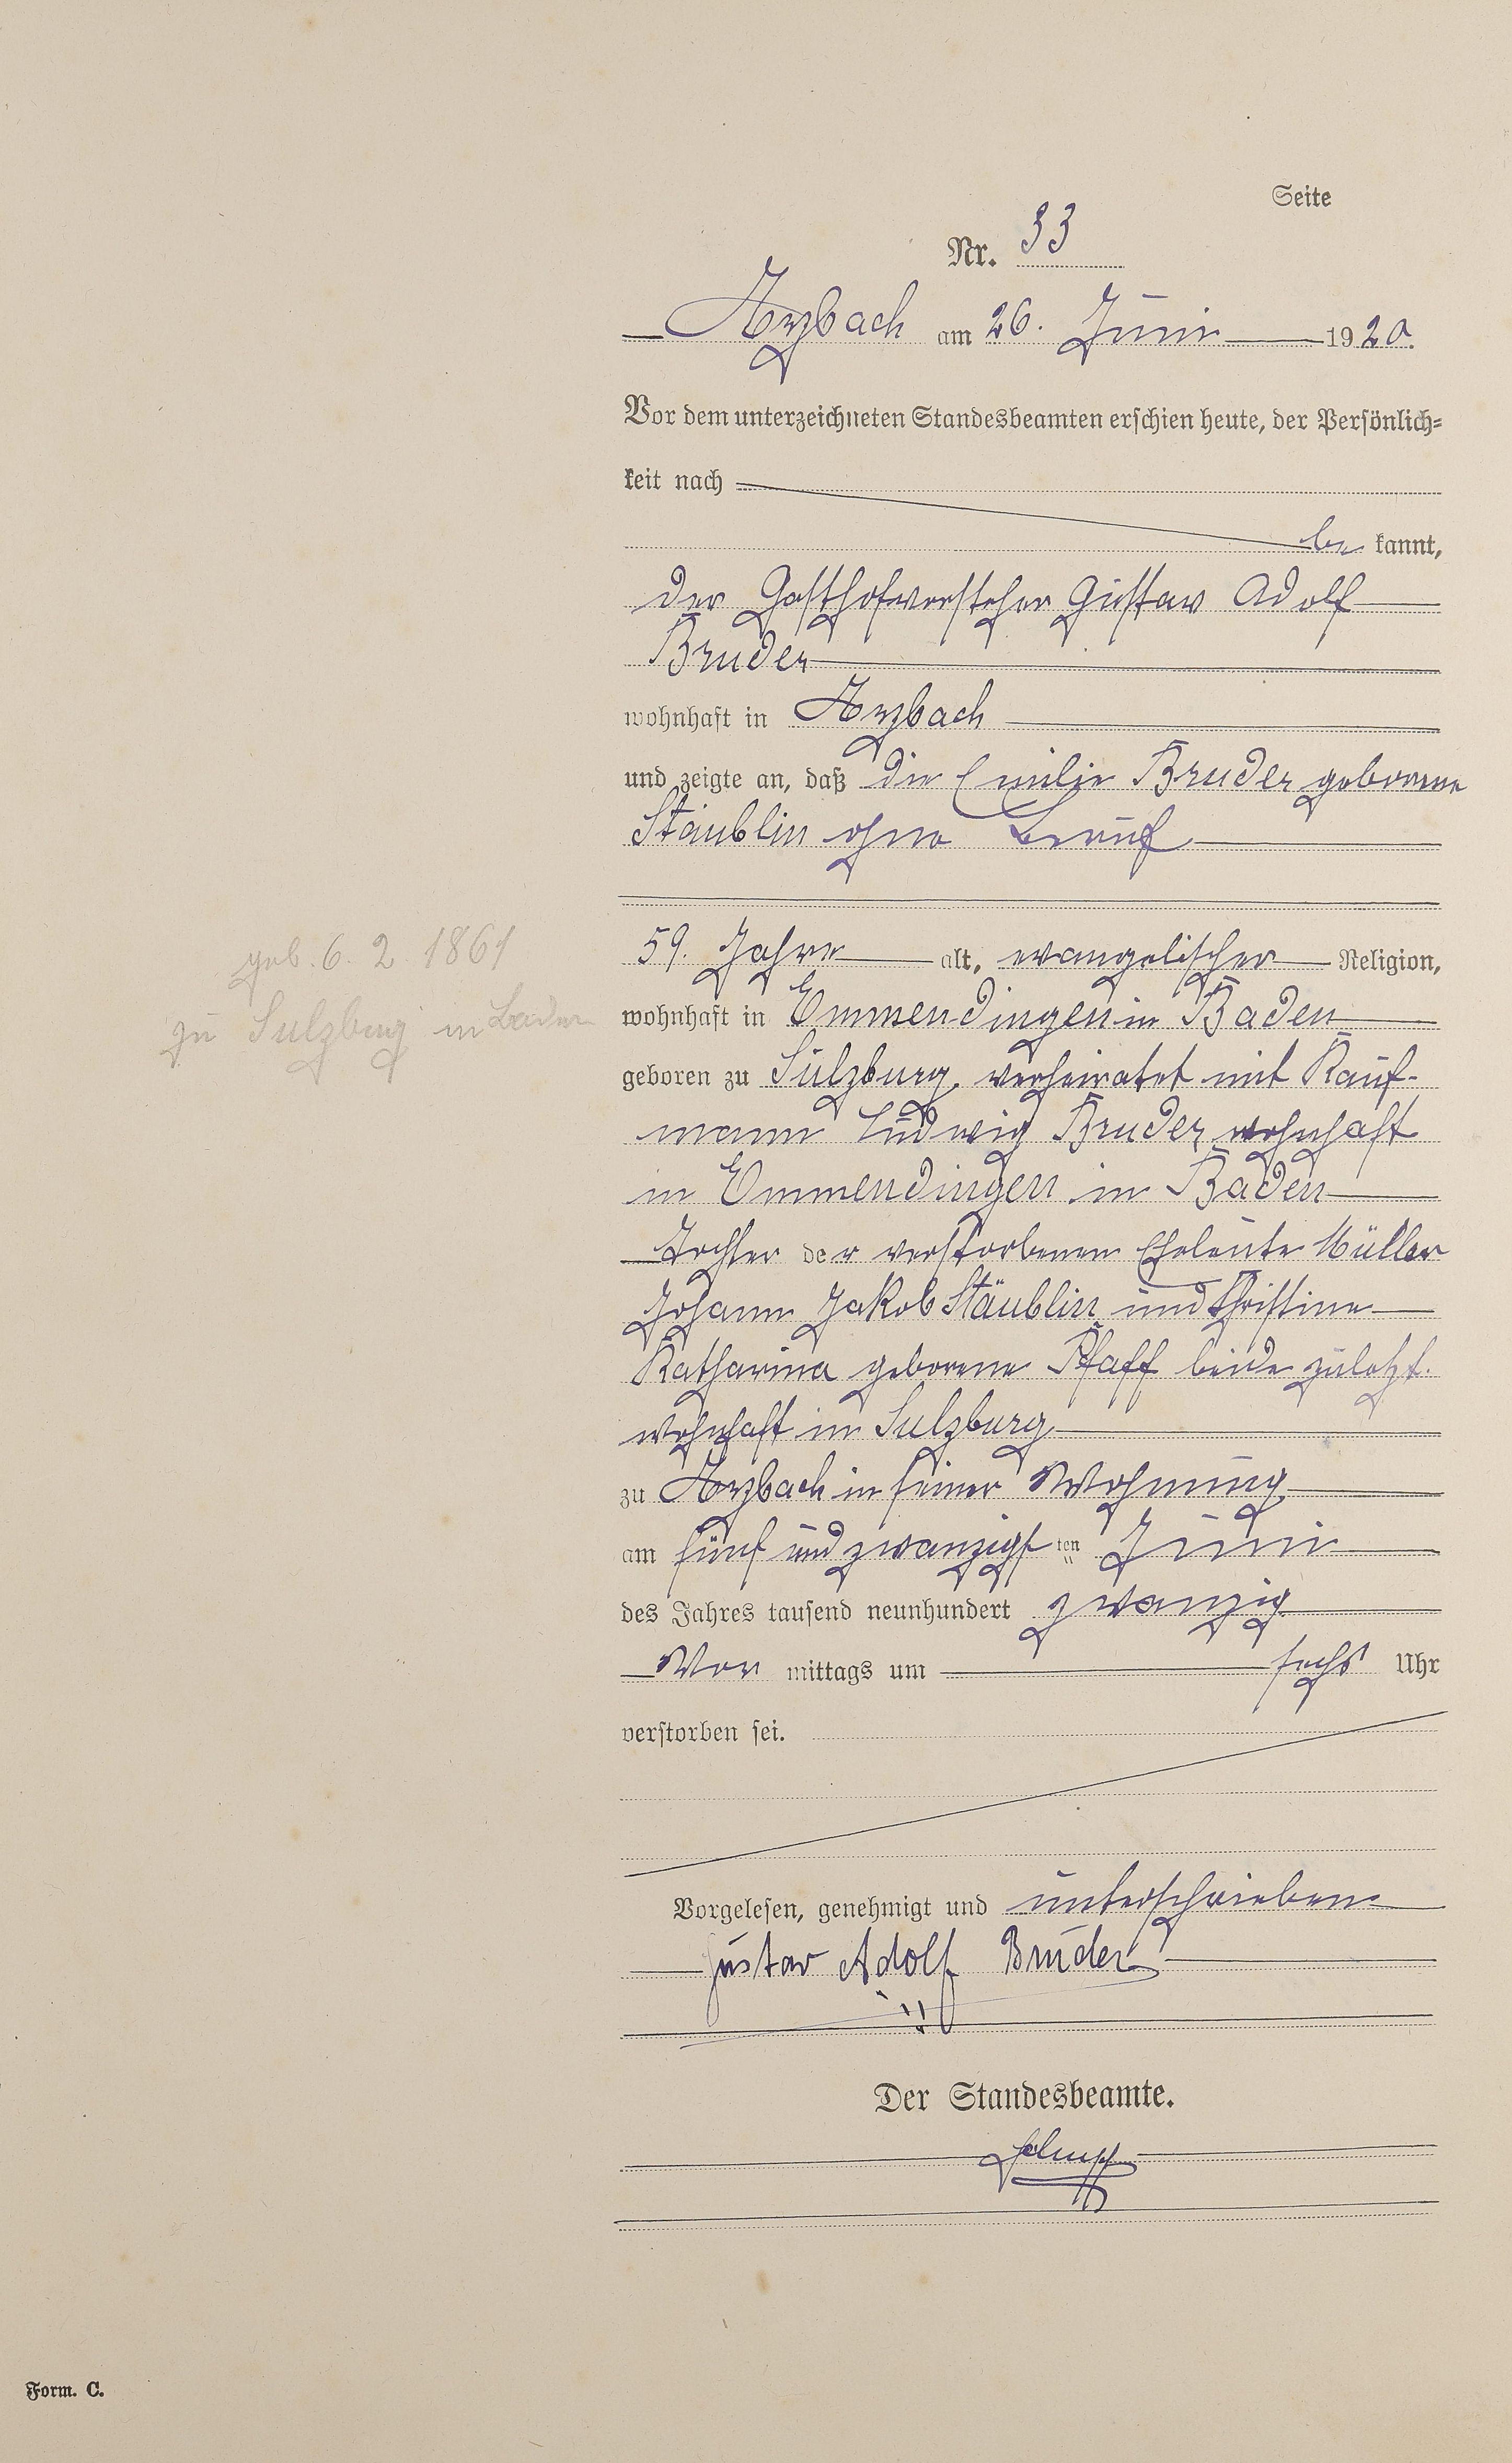 Seite
Nr. 33
Arzbach am 26. Juni 1920.
Vor dem unterzeichneten Standesbeamten erschien heute, der Persönlich=
keit nach
be kannt,
der Gasthofvorsteher Gustav Adolf
Bruder
wohnhaft in Arzbach
und zeigte an, daß die Emilie Bruder geborene
Stäublin ohne Beruf
geb. 6. 2. 1861
59. Jahre alt, evangelischer Religion,
zu Sulzburg in Baden
wohnhaft in Emmendingen in Baden
geboren zu Sulzburg, verheiratet mit Kauf-
mann Ludwig Bruder wohnhaft
in Emmendingen in Baden
Tochter der verstorbenen Eheleute Müller
Johann Jakob Stäublin und Christine
Katharina geborene Pfaff beide zuletzt
wohnhaft in Sulzburg
zu Arzbach in seiner Wohnung
am fünf und zwanzigsten Juni
des Jahres tausend neunhundert zwanzig
Vor mittags um sechs Uhr
verstorben sei.
Vorgelesen, genehmigt und unterschrieben
Gustav Adolf Bruder
Der Standesbeamte.
Form. C.